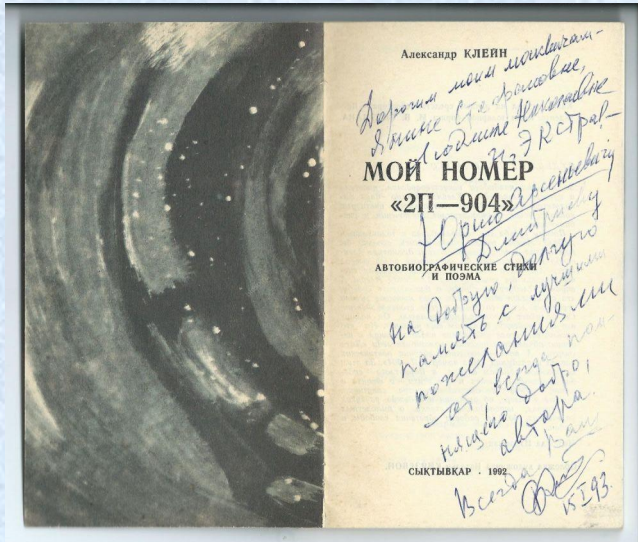 Александр КЛЕЙН
Дорогим моим москвичам—
Янине Стефановне,
Людмиле Никитовне
и ЭКСтрав-
МОЙ НОМЕР
«2П—904»
Юрию Арсеньевичу
Дмитриеву
АВТОБИОГРАФИЧЕСКИЕ СТИХИ
И ПОЭМА
на добрую, долгую
память с лучшими
пожеланиями
от всегда пом-
нящего добро,
автора.
Всегда Ваш
СЫКТЫВКАР · 1992
15.I.93.